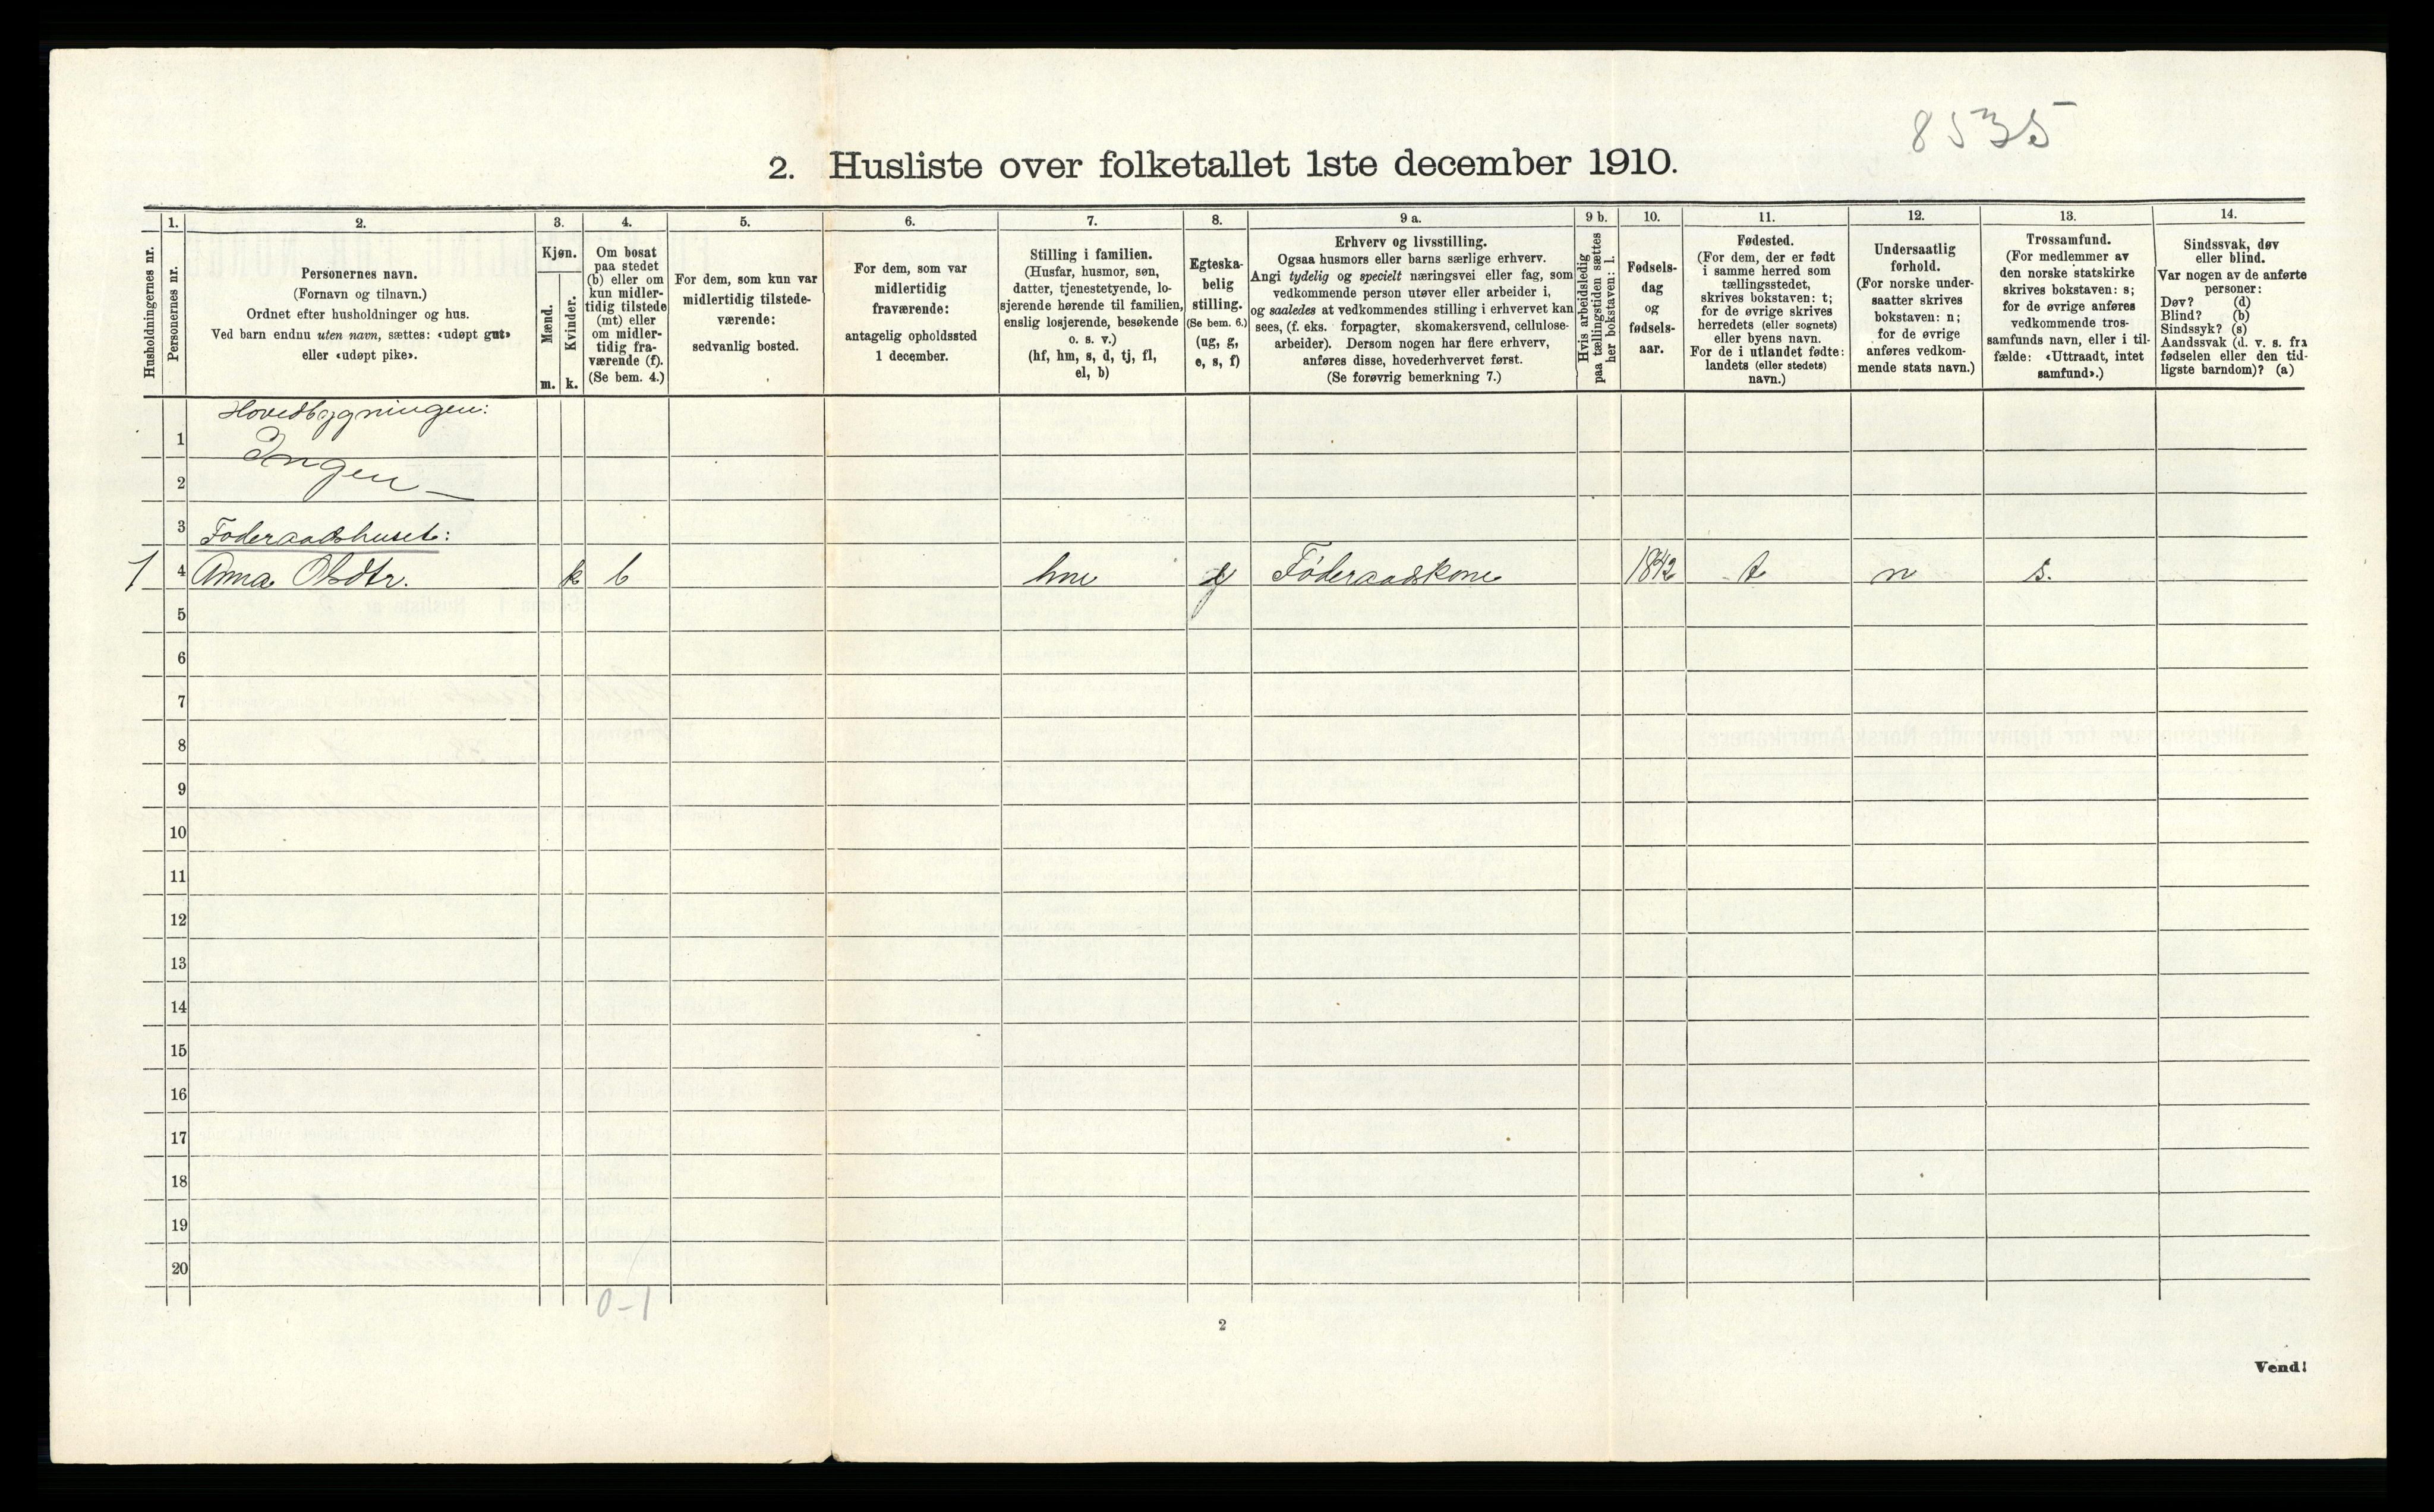 8535
2. Husliste over folketallet 1ste december 1910.
Husholdningernes nr.
1.
Personernes nr.
2.
Personernes navn.
(Fornavn og tilnavn.)
Ordnet efter husholdninger og hus.
Ved barn endnu uten navn, sættes: «udøpt gut»
eller «udøpt pike».
3.
Kjøn.
Mænd.
Kvinder.
m. k.
4.
Om bosat
paa stedet
(b) eller om
kun midler-
tidig tilstede
(mt) eller
om midler-
tidig fra-
værende (f).
(Se bem. 4.)
5.
For dem, som kun var
midlertidig tilstede-
værende:
sedvanlig bosted.
6.
For dem, som var
midlertidig
fraværende:
antagelig opholdssted
1 december.
7.
Stilling i familien.
(Husfar, husmor, søn,
datter, tjenestetyende, lo-
sjerende hørende til familien,
enslig losjerende, besøkende
o. s. v.)
(hf, hm, s, d, tj, fl,
el, b)
8.
Egteska-
belig
stilling.
(Se bem. 6.)
(ug, g,
e, s, f)
9 a.
Erhverv og livsstilling.
Ogsaa husmors eller barns særlige erhverv.
Angi tydelig og specielt næringsvei eller fag, som
vedkommende person utøver eller arbeider i,
og saaledes at vedkommendes stilling i erhvervet kan
sees, (f. eks. forpagter, skomakersvend, cellulose-
arbeider). Dersom nogen har flere erhverv,
anføres disse, hovederhvervet først.
(Se forøvrig bemerkning 7.)
9 b.
Hvis arbeidsledig
paa tællingstiden sættes
her bokstaven: l.
10.
Fødsels-
dag
og
fødsels-
aar.
11.
Fødested.
(For dem, der er født
i samme herred som
tællingsstedet,
skrives bokstaven: t;
for de øvrige skrives
herredets (eller sognets)
eller byens navn.
For de i utlandet fødte:
landets (eller stedets)
navn.)
12.
Undersaatlig
forhold.
(For norske under-
saatter skrives
bokstaven: n;
for de øvrige
anføres vedkom-
mende stats navn.)
13.
Trossamfund.
(For medlemmer av
den norske statskirke
skrives bokstaven: s;
for de øvrige anføres
vedkommende tros-
samfunds navn, eller i til-
fælde: «Uttraadt, intet
samfund».)
14.
Sindssvak, døv
eller blind.
Var nogen av de anførte
personer:
Døv? (d)
Blind? (b)
Sindssyk? (s)
Aandssvak (d. v. s. fra
fødselen eller den tid-
ligste barndom)? (a)
Hovedbygningen:
1 Ingen
2
3 Føderaadshuset:
1 4 Anna Olsdtr. k b hm Føderaadskone 1842 t n s.
5
6
7
8
9
10
11
12
13
14
15
16
17
18
19
20
0-1
2
Vend!